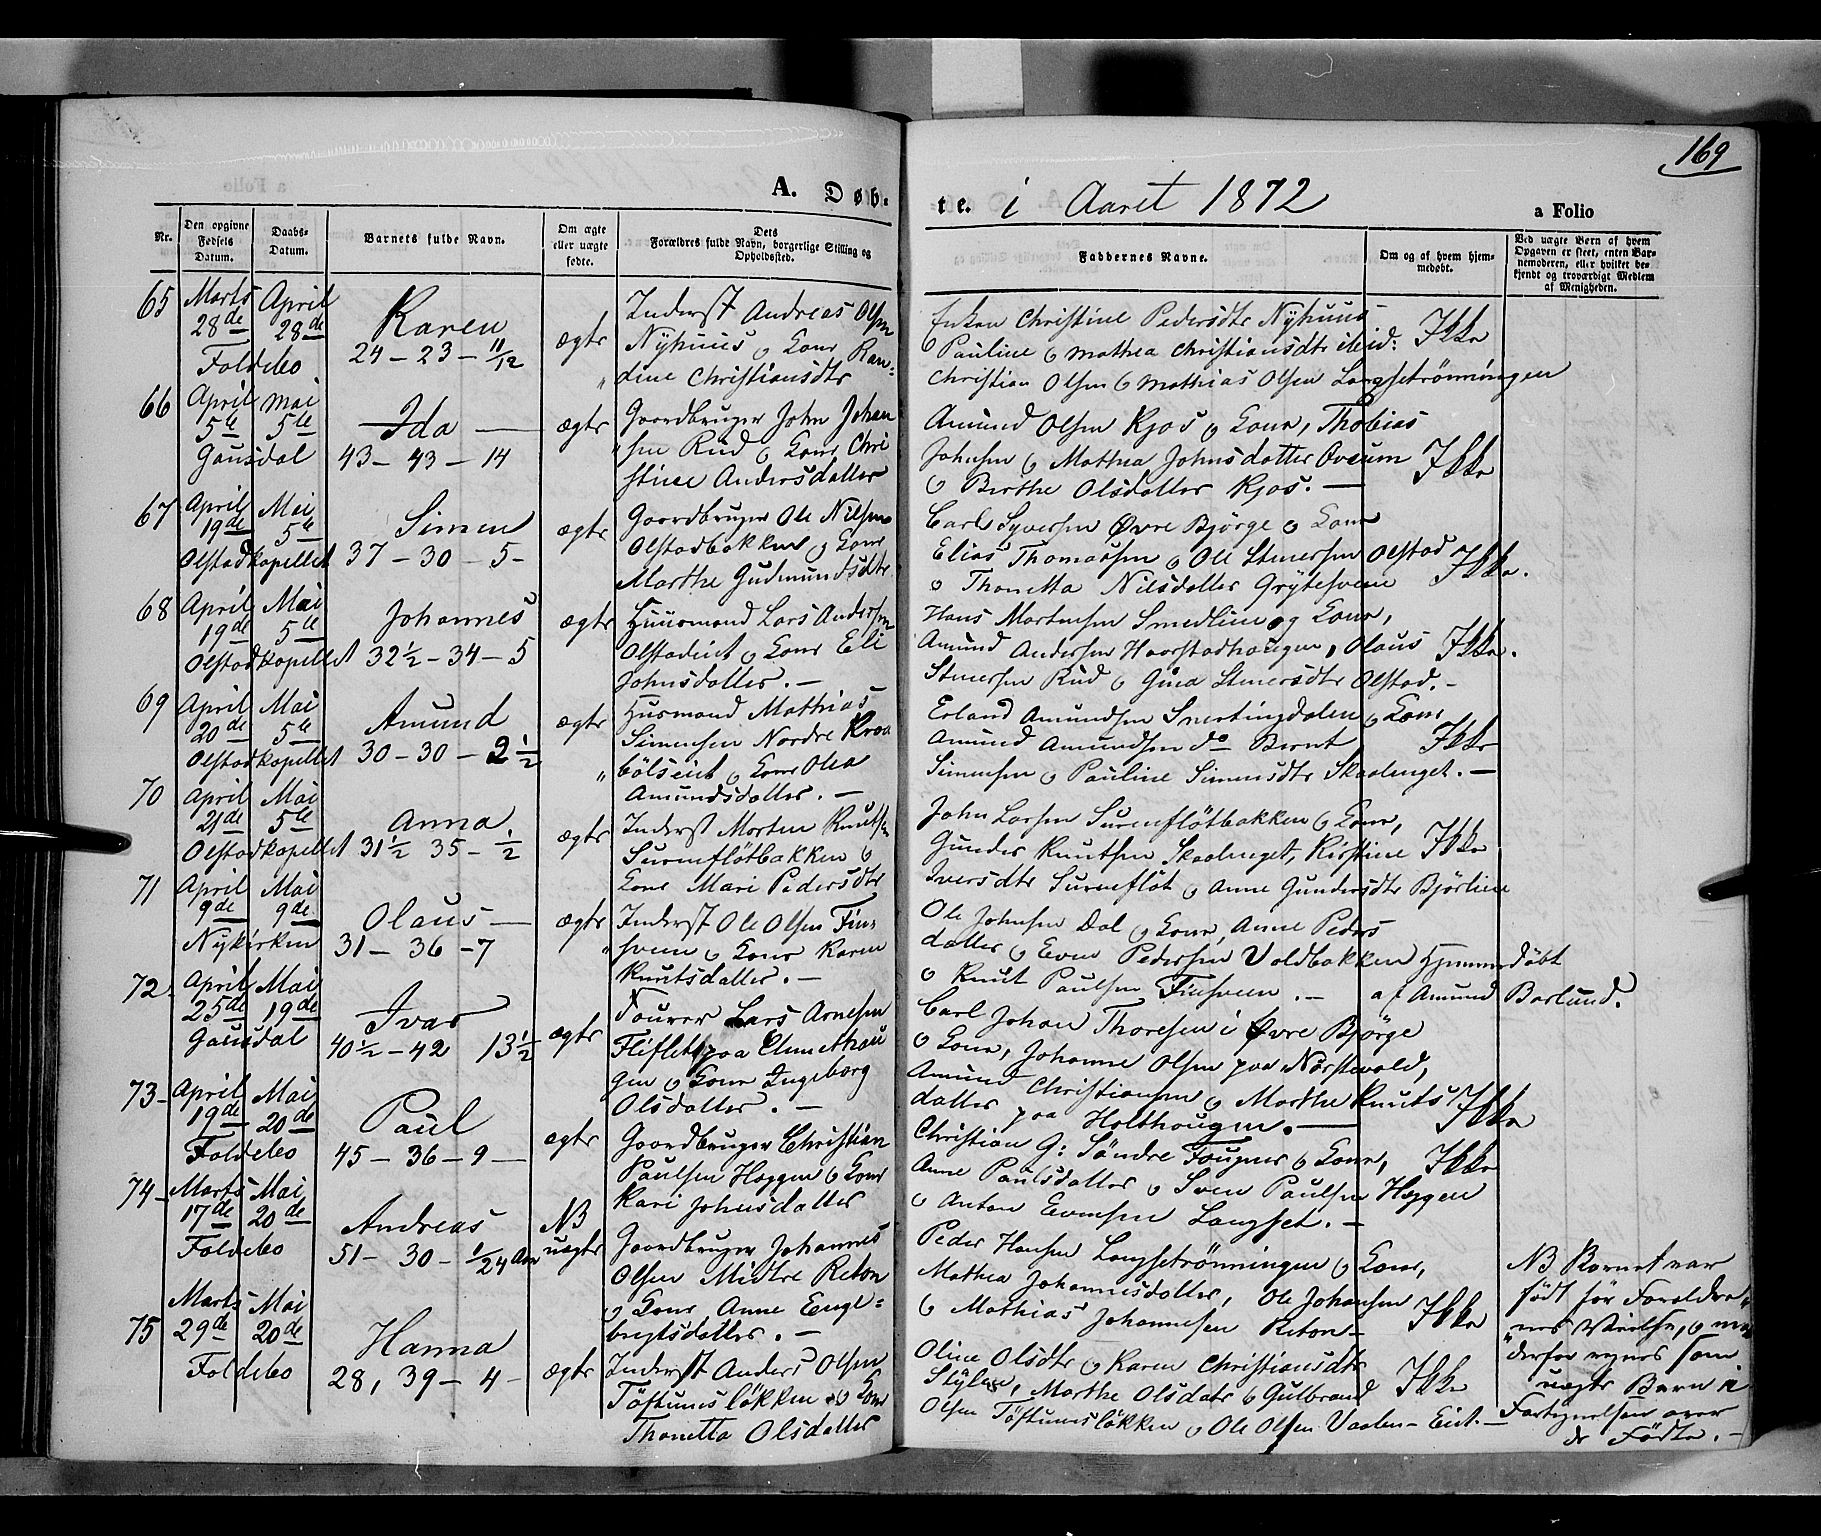 169
A. Døb-
te. i Aaret 1872
a Folio
Nr.
Den opgivne Fødsels Datum.
Daabs-Datum.
Barnets fulde Navn.
Om ægte eller uægte fødte.
Dets Forældres fulde Navn, borgerlige Stilling og Opholdssted.
Faddernes Navne.
Om og af hvem hjemmedøbt.
Ved uægte Børn af hvem Opgaven er skeet, enten Barnemoderen, eller hvilket bekjendt og troværdigt Medlem af Menigheden.
65 Marts 28de April 28de Foldebo
Karen
24 - 23 - 11/12
ægte
Inderst Andreas Olsen
Nyhuus o Kone Ran-
dine Christiansdtr
Enken Christine Pedersdtr Nyhuus
o Pauline o Mathea Christiansdtr ibid:
Christian Olsen o Mathias Olsen Langsetrønningen
Ikke
66 April 5te Mai 5te Gausdal
Ida
43 - 43 - 14
ægte
Gaardbruger John Johan
sen Rud o Kone Chri
stine Andersdatter
Amund Olsen Kjos o Kone, Thobias
Johnsen o Mathea Johnsdatter Oveum
o Berthe Olsdatter Kjos. -
Ikke
67 April 19de Mai 5te Olstadkapellet
Simen
37 - 30 - 5 -
ægte
Gaardbruger Ole Nilsen
Olstadbakken o Kone
Marthe Gudmundsdtr
Carl Syversen Øvre Bjørge o Kone
Elias Thomassen o Ole Stenersen Olstad
o Thonetta Nilsdatter Grytesveen
Ikke.
68 April 19de Mai 5te Olstadkapellet
Johannes
32½ - 34 - 5
ægte
Huusmand Lars Andersen
Olstadeiet o Kone Eli
Johnsdatter. -
Hans Martensen Smedlien og Kone,
Amund Andersen Haarstadhaugen, Olaus
Stenersen Rud o Gina Stenersdtr Olstad. -
Ikke.
69 April 20de Mai 5te Olstadkapellet
Amund
30 - 30 - 2½
ægte
Husmand Mathias
Simensen Nordre Kraa
bølseiet o Kone Olea
Amundsdatter. -
Erland Amundsen Snertingdalen o Kone
Amund Amundsen do Bernt
Simensen o Pauline Simensdtr Skaalenget. -
Ikke
70 April 21de Mai 5te Olstadkapellet
Anna
31½ 35 - ½
ægte
Inderst Morten Knutsen
Surenfløtbakken o
Kone Mari Pedersdtr
John Larsen Surenfløtbakken o Kone,
Gunder Knutsen Skaalenget, Kirstine
Iversdtr Surenfløt o Anne Gundersdtr Bjørlien
Ikke
71 April 9de Mai 9de Nykirken
Olaus
31 - 36 - 7
ægte
Inderst Ole Olsen Fin-
sveen o Kone Karen
Knutsdatter. -
Ole Johnsen Dal o Kone, Anne Peders
datter o Even Pedersen Voldbakken
o Knut Paulsen Finsveen. -
Hjemmedøbt
af Amund Baslund.
72 April 25de Mai 19de Gausdal
Ivar
40½ - 42 13½
ægte
Tourer Lars Arnesen
Fliflet paa
gen o Kone Ingeborg
Olsdatter. -
Carl Johan Thoresen i Øvre Bjørge
o Kone, Johanne Olsen paa Nørstevold,
Amund Christiansen o Marthe Knuts
datter paa Holthougen. -
Ikke
73 April 19de Mai 20de Foldebo
Paul
45 - 36 - 9 -
ægte
Gaardbruger Christian
Paulsen Heggen o Kone
Kari Johnsdatter
Christian G: Søndre Fougner o Kone,
Anne Paulsdatter o Sven Paulsen Heggen
o Anton Evensen Langset. -
Ikke
74 Marts 17de Mai 20de Foldebo
Andreas
51 - 30 - 1/24 Aar
NB
uægte
Gaardbruger Johannes
Olsen Midtre Reton
o Kone Anne Enge-
bregtsdatter. -
Peder Hansen Langsetrønningen o Kone,
Mathea Johannesdatter, Ole Johansen
o Mathias Johannesen Reton -
Ikke
NB Barnet var
født før Foreldre-
nes Vielse, o maa
derfor regnes som
uægte Barn i
Fortegnelsen over
de Fødte. -
75 Marts 29de Mai 20de Foldebo
Hanna
28, 39 - 4 -
ægte
Inderst Anders Olsen
Tøftumsløkken o Kone
Thonetta Olsdatter
Oline Olsdtr o Karen Christiansdtr
Slylien, Marthe Olsdatr o Gulbrand
Olsen Tøftumsløkken o Ole Olsen Vaalen-Eiet. -
Ikke